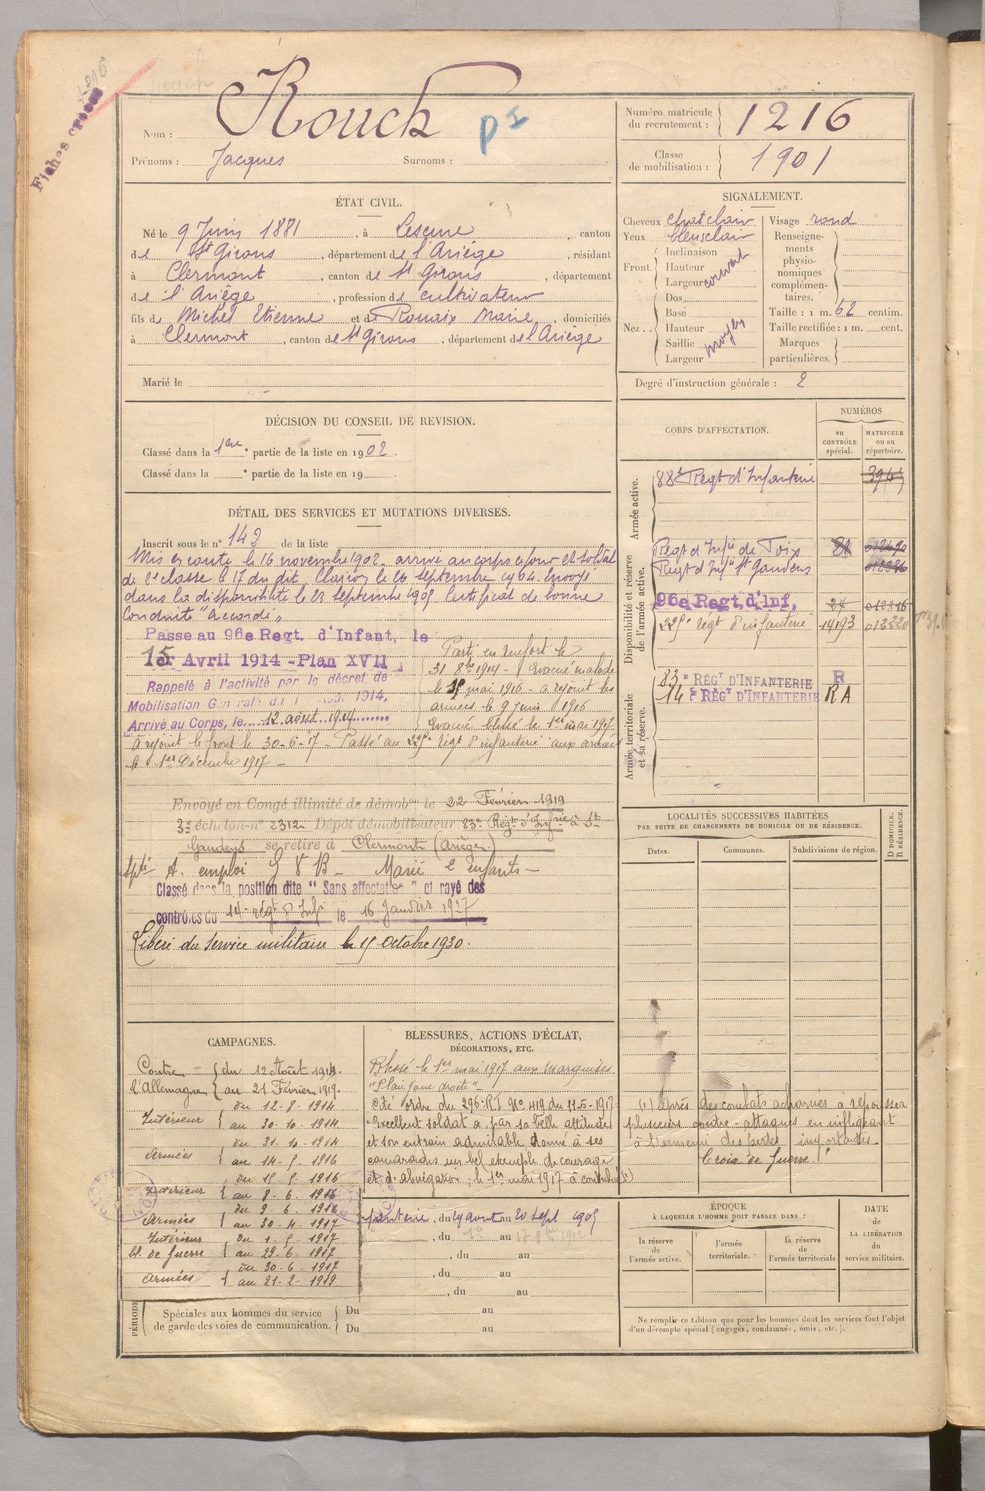 Fiches
Rouch
PI
Nom :
Prénoms : Jacques Surnoms :
Numéro matricule du recrutement : 1216
Classe de mobilisation : 1901
ÉTAT CIVIL.
Né le 9 Juin 1881, à Lescure, canton
de St Girons, département de l'Ariège, résidant
à Clermont, canton de St Girons, département
de l'Ariège, profession de cultivateur
fils de Michel Etienne et de Rouaix Marie, domiciliés
à Clermont, canton de St Girons, département de l'Ariège
Marié le
SIGNALEMENT.
Cheveux chat clair
Yeux bleus clair
Front : Inclinaison
Hauteur
Largeur couvert
Nez : Dos
Base
Hauteur
Saillie
Largeur moyen
Visage rond
Renseignements physionomiques complémentaires.
Taille : 1 m. 62 centim.
Taille rectifiée : 1 m. cent.
Marques particulières.
Degré d'instruction générale : 2
DÉCISION DU CONSEIL DE REVISION.
Classé dans la 1ere partie de la liste en 1902.
Classé dans la e partie de la liste en 19 .
DÉTAIL DES SERVICES ET MUTATIONS DIVERSES.
Inscrit sous le n° 142 de la liste
Mis en route le 16 novembre 1902 arrivé au corps ce jour et soldat
de 2e classe le 17 du dit, Clairon le 26 septembre 1904. Envoyé
dans la disponibilité le 23 septembre 1905 Certificat de bonne
Conduite "accordé"
Passe au 96e Regt. d'Infant, le
15 Avril 1914 - Plan XVII
Rappelé à l'activité par le décret de
Mobilisation Générale du 1914,
Arrivé au Corps, le 12 août 1914
Parti en renfort le
31 8bre 1914 - Evacué malade
le 15 mai 1916 - a rejoint les
armées le 9 juin 1916
Evacué blessé le 1er mai 1917
a rejoint le front le 30-6-17 - Passé au 225e régt d'infanterie aux armées
le 1er Décembre 1917 -
Envoyé en Congé illimité de démob on le 22 Février 1919
3e échelon n° 2312 Dépôt démobilisateur 83e Régt d'Infrie à St
Gaudens se retire à Clermont (Ariège)
A. emploi S & B - Marié 2 enfants -
Classé dans la position dite "Sans affectation" et rayé des
contrôles du 14e régt d'Inf le 16 Janvier 1927
Libéré du service militaire le 15 octobre 1930.
CORPS D'AFFECTATION.
NUMÉROS
au CONTRÔLE spécial.
MATRICULE ou au répertoire.
Armée active.
88e Régt d'Infanterie
Disponibilité et réserve de l'armée active.
Régt d'Infie de Foix
Régt d'Infie St Gaudens
96e Regt, d'Inf,
225e régt d'infanterie 14193
Armée territoriale et sa réserve.
83e RÉGt D'INFANTERIE R
14e RÉGt D'INFANTERIE RA
LOCALITÉS SUCCESSIVES HABITÉES
PAR SUITE DE CHANGEMENTS DE DOMICILE OU DE RÉSIDENCE.
Dates. Communes. Subdivisions de région.
D DOMICILE. R RÉSIDENCE.
CAMPAGNES.
Contre l'Allemagne du 12 Août 1914
au 21 Février 1919
Intérieur du 12-8-1914
au 30-10-1914
Armées du 31-10-14
au 14-5-1916
Intérieur du 15-5-1916
au 8-6-1916
Armées du 9-6-1916
au 30-4-1917
Intérieur bl. de guerre du 1-5-1917
au 29-6-1917
Armées du 30-6-1917
au 21-2-1919
BLESSURES, ACTIONS D'ÉCLAT,
DÉCORATIONS, ETC.
Blessé le 1er mai 1917 aux Marquises
"Plaie face droite" -
Cité ordre du 296e RI N° 419 du 11-5-1917
"Excellent soldat a par sa belle attitude
et son entrain admirable donné à ses
camarades un bel exemple de courage
et d'abnégation ; le 1er mai 1917 a contribué (1)
(1) après des combats acharnés à repousser
plusieurs contre-attaques en infligeant
à l'ennemi des pertes importantes.
Croix de Guerre."
du 24 aout au 20 sept 1908
, du au
, du au
, du au
, du au
PÉRIODES
Spéciales aux hommes du service
de garde des voies de communication.
Du au
Du au
ÉPOQUE
À LAQUELLE L'HOMME DOIT PASSER DANS :
la réserve de l'armée active.
l'armée territoriale.
la réserve de l'armée territoriale
DATE DE LA LIBÉRATION du service militaire.
Ne remplir ce tableau que pour les hommes dont les services font l'objet
d'un décompte spécial (engagés, condamnés, omis, etc.).